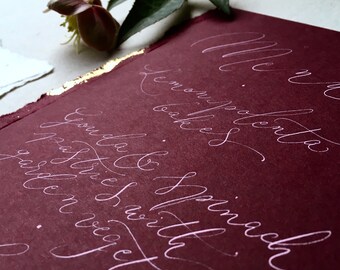 Menu
Lemon polenta
cakes
Gouda & Spinach
pastries with
garden veget